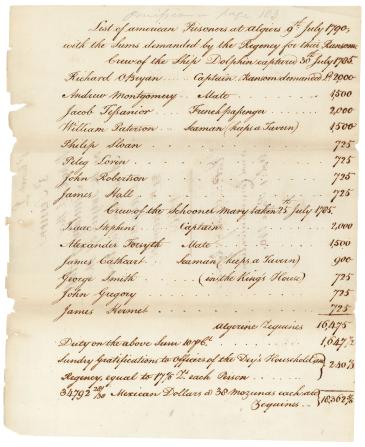 List of american Prisoners at algiers 9th July 1790,
with the Sums demanded by the Regency for their Ransom
Crew of the Ship Dolphin captured 30th July 1785
Richard OBryan . Captain . Ransom demanded 2000
Andrew Montgomery . Mate . . . 1500
Jacob Tessanior . French passenger . . . 2,000
William Paterson . Seaman (keeps a Tavern) . . 1500
Philip Sloan . . . 725
Peleg Loren . . . 725
John Robertson . . . 725
James Hall . . . 725
Crew of the Schooner Mary taken 25th July 1785.
Isaac Stephens . Captain . . . 2,000
Alexander Forsyth . Mate . . . 1500
James Cathcart . Seaman (keeps a Tavern) . . 900
George Smith . . (in the King's House) . . 725
John Gregory . . . 725
James Hermet . . . 725
algerine Zequines . . 16,475
Duty on the above Sum 10 . . . 1,647½
Sundry Gratifications to Officers of the Dey's Household and
Regency, equal to 17 each Person . . . 240
34792 Mexican Dollars @ 38 Mozunas each are
Zequines . . 18,362